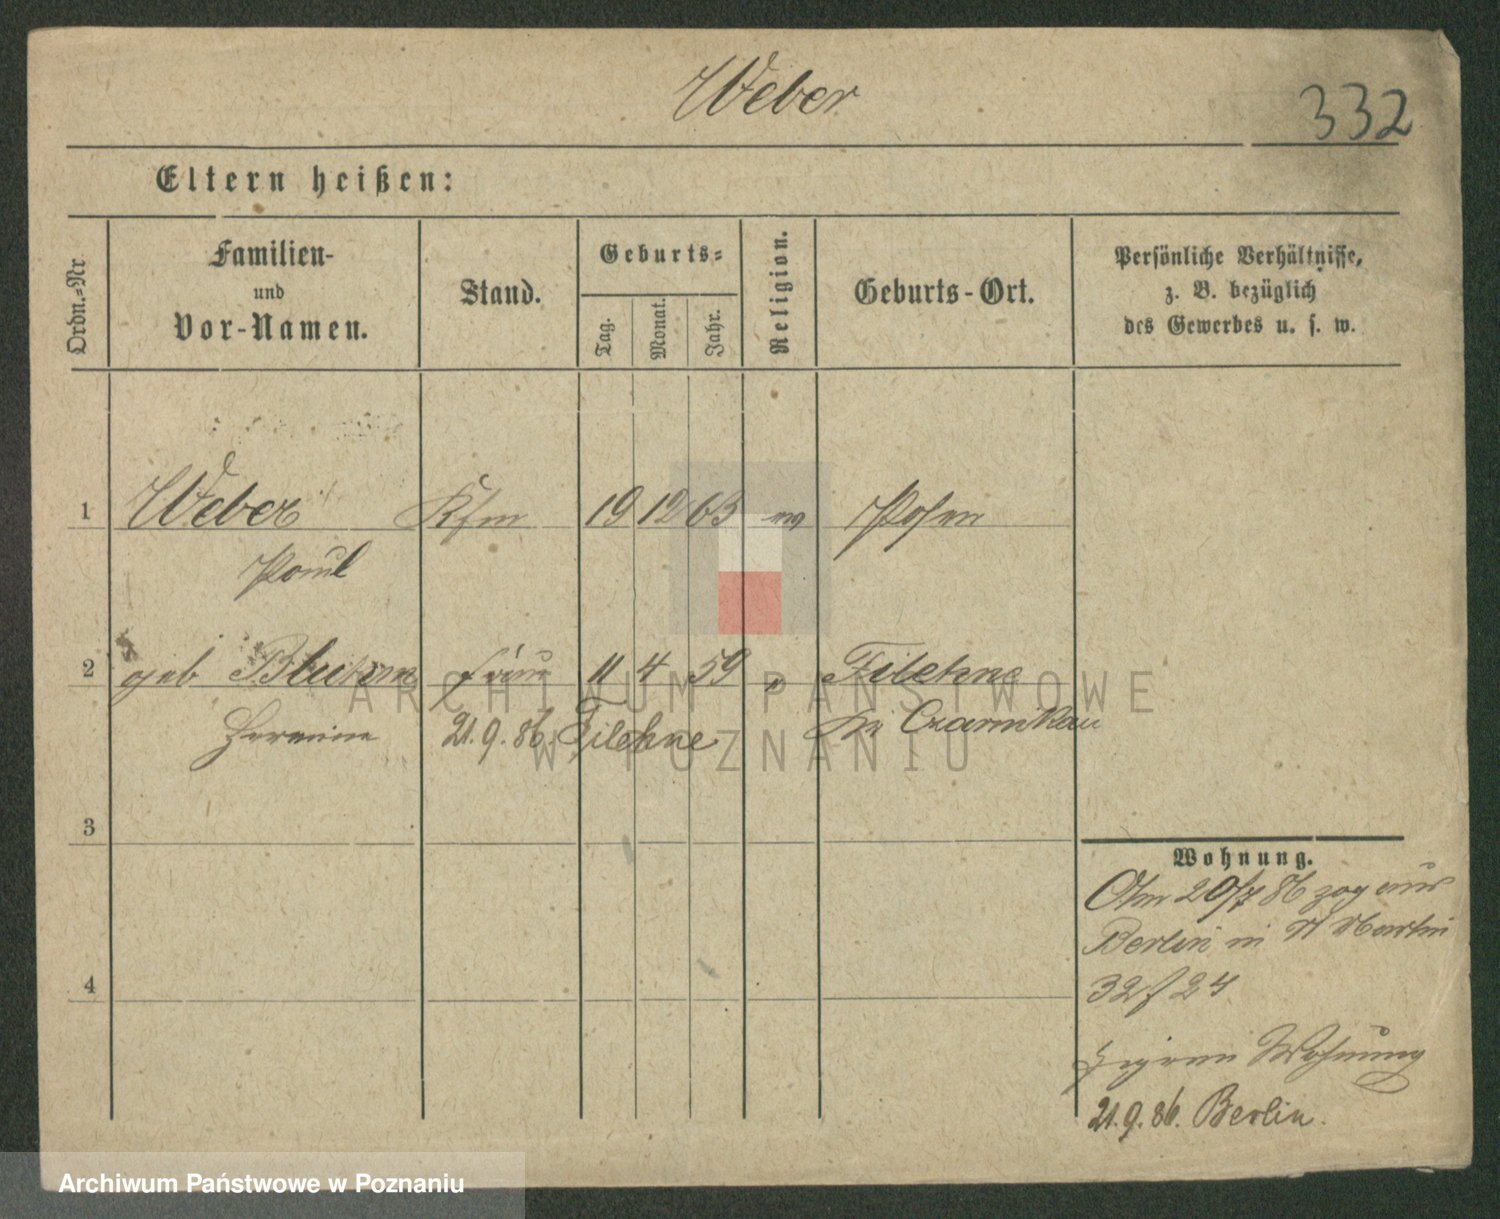 Weber
332
Eltern heißen:
Ordn.=Nr
Familien-
und
Vor-Namen.
Stand.
Geburts=
Tag.
Monat.
Jahr.
Religion.
Geburts-Ort.
Persönliche Verhältnisse,
z. B. bezüglich
des Gewerbes u. s. w.
1 Weber Kfm 19 12 63 Posen
Paul
2 geb Bluhm Frau 11 4 59 " Filehne
Hermine 21.9.86 Filehne Kr Czarnikau
3
4
Wohnung.
Am 20/7 86 zog aus
Berlin in St Martin
32 f 24
Eigene Wohnung
21.9.86. Berlin.
ARCHIWUM PAŃSTWOWE
W POZNANIU
Archiwum Państwowe w Poznaniu